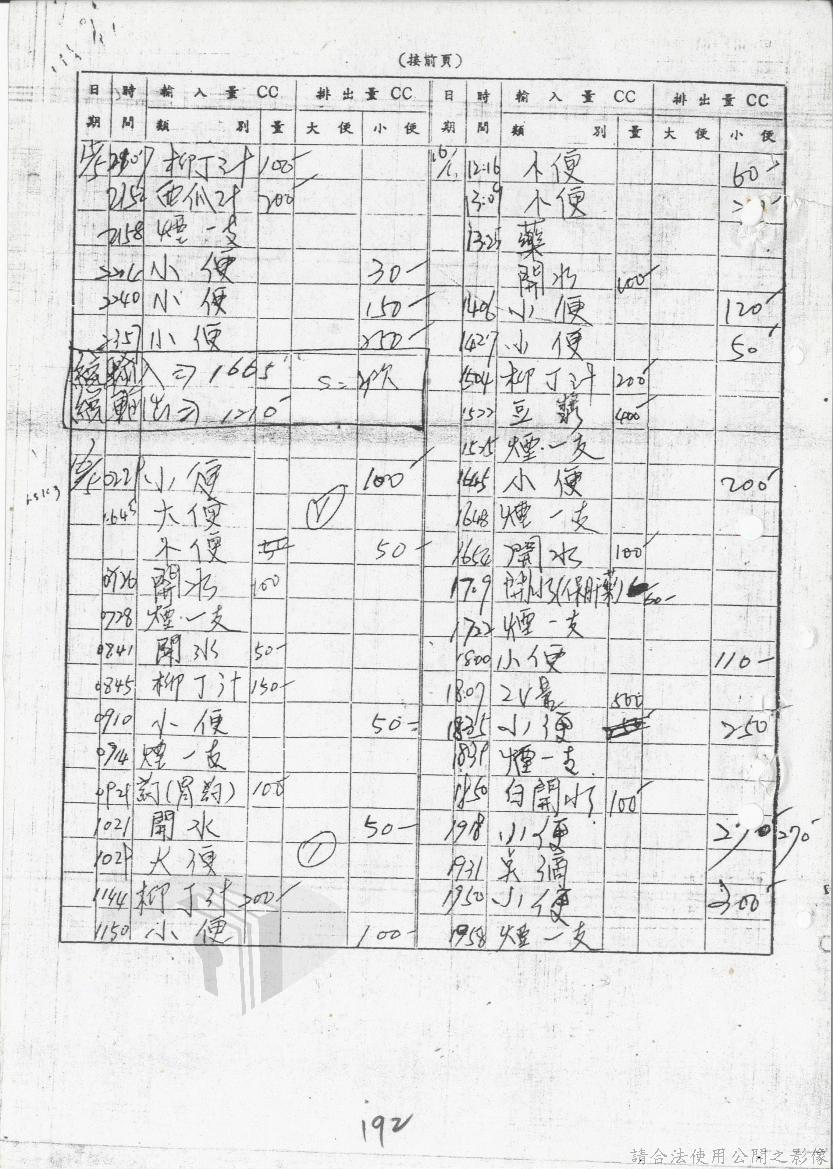 (接前頁)
日期 時間 輸入量CC 類別 量 排出量CC 大便 小便
15/5 2107 柳丁汁 100
2152 西瓜汁 200
2158 煙一支
小便 30
2240 小便 150
2357 小便 250
總輸入⇒1665
S=2次
總輸出⇒1210
16/5 022 小便 100
0645 大便 ①
小便 50
0726 開水 100
0728 煙一支
0841 開水 50
0845 柳丁汁 150
0910 小便 50
0914 煙一支
0921 葯(胃葯) 100
1021 開水 50
102 大便 ①
1144 柳丁汁 200
1150 小便 100
日期 時間 輸入量CC 類別 量 排出量CC 大便 小便
16/5 12:16 小便 60
13:09 小便
13:25 藥
開水 100
1406 小便 120
1427 小便 50
1504 柳丁汁 200
1522 豆漿 400
1525 煙一支
1645 小便 200
1648 煙一支
1654 開水 100
1709 開水(保肝藥) 50
1722 煙一支
1800 小便 110
1807 500
1835 小便 250
1839 煙一支
1850 白開水 100
1918 小便 270 270
1931
1950 小便 300
1958 煙一支
192
請合法使用公開之影像